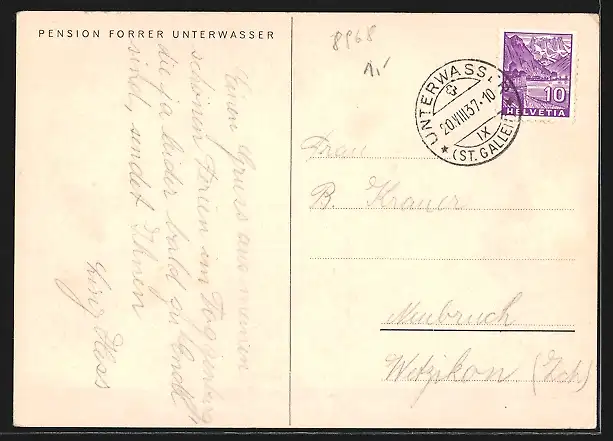 PENSION FORRER UNTERWASSER
8968
1,-
Einen Gruss aus meinen
schönen Ferien im Toggenburg
die ja leider bald zu Ende
sind, sendet Ihnen
Hess
UNTERWASSER
20.VIII.37.-10
IX
(ST. GALLEN)
10
HELVETIA
Frau
B. Krauer
Neubruch
Wetzikon (Zch)